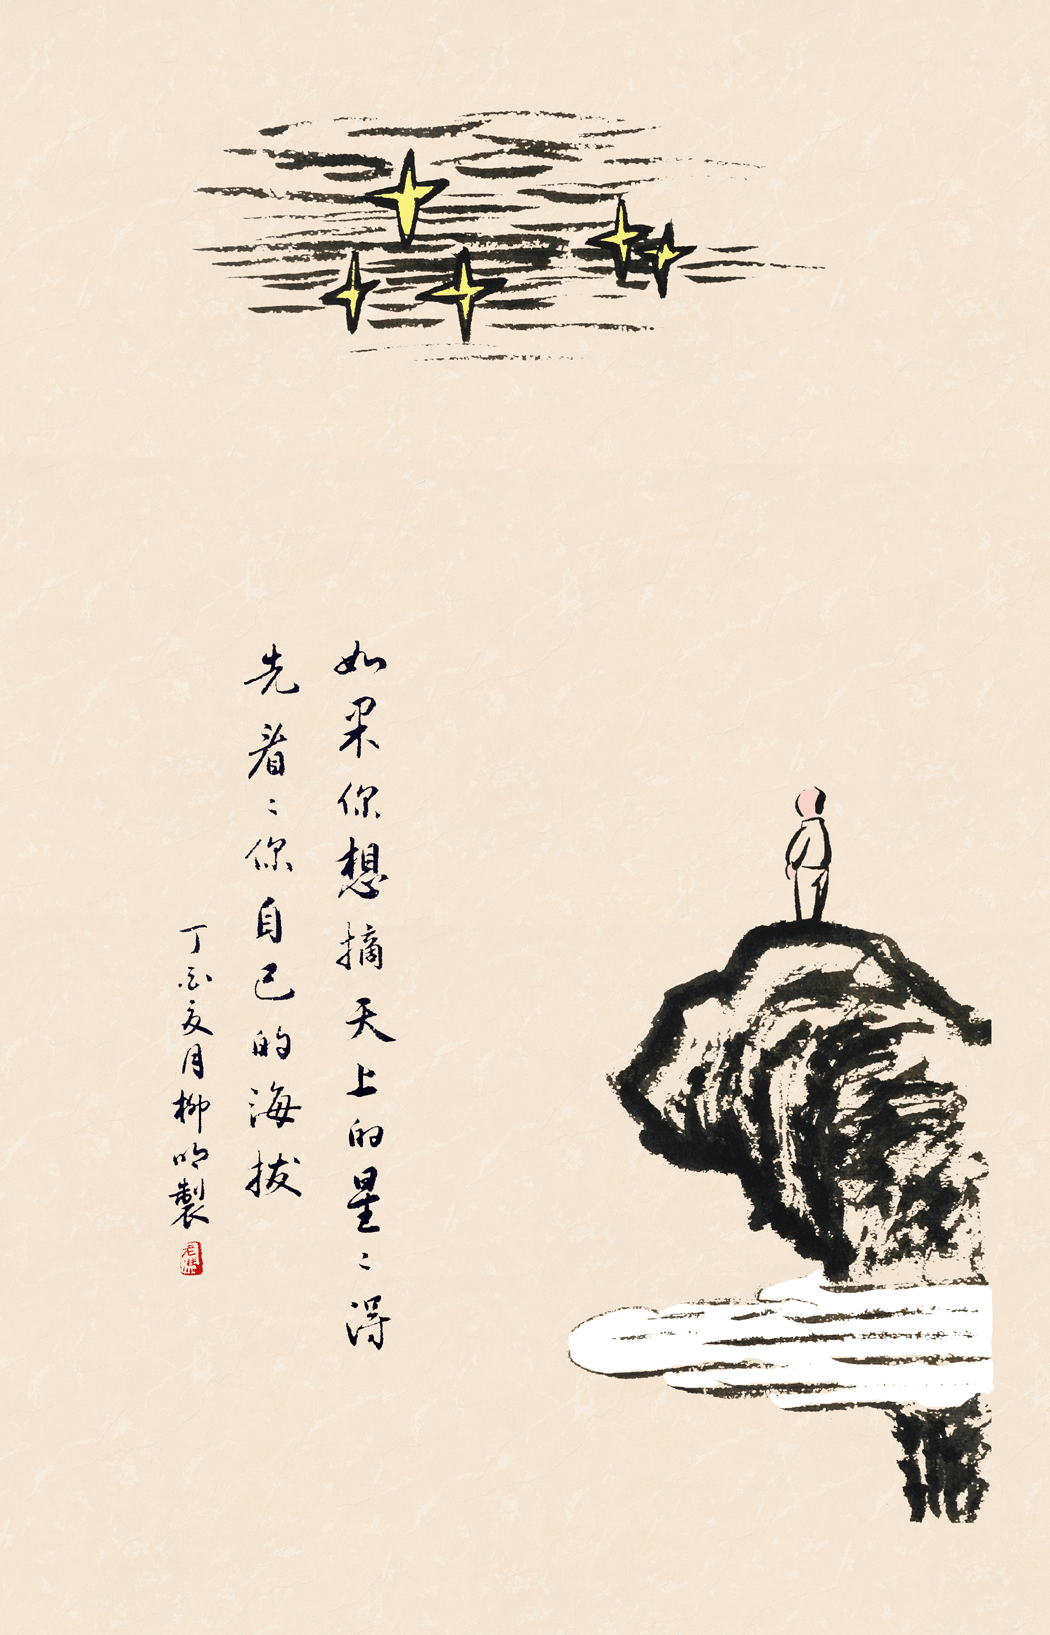 如果你想摘天上的星：得
先看：你自己的海拔
丁酉夏月柳鸣製